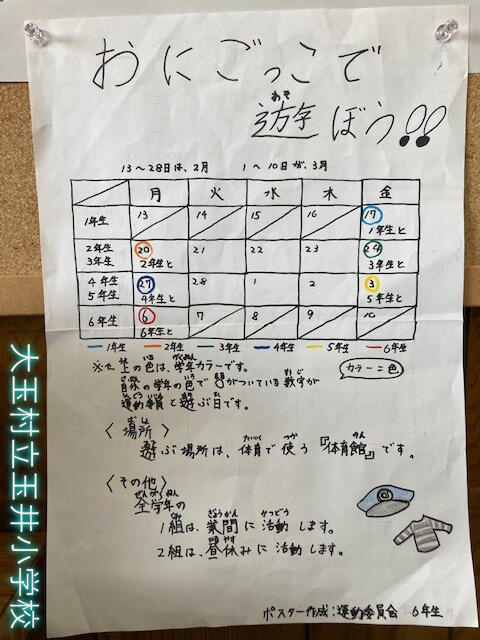 おにごっこで
遊ぼう!!
あそ
13～28日は、2月 1～10日が、3月
月 火 水 木 金
1年生 13 14 15 16 17 1年生と
2年生 3年生 20 2年生と 21 22 23 24 3年生と
4年生 5年生 27 4年生と 28 1 2 3 5年生と
6年生 6 6年生と 7 8 9 10
1年生 2年生 3年生 4年生 5年生 6年生
上の色は、学年カラーです。
カラー=色
の学年の色で○がついている数字が
運動委員と遊ぶ日です。
〈場所〉
遊ぶ場所は、体育で使う『体育館』です。
〈その他〉
全学年の
1組は、業間に活動します。
2組は、昼休みに活動します。
ポスター作成:運動委員会 6年生
大玉村立玉井小学校